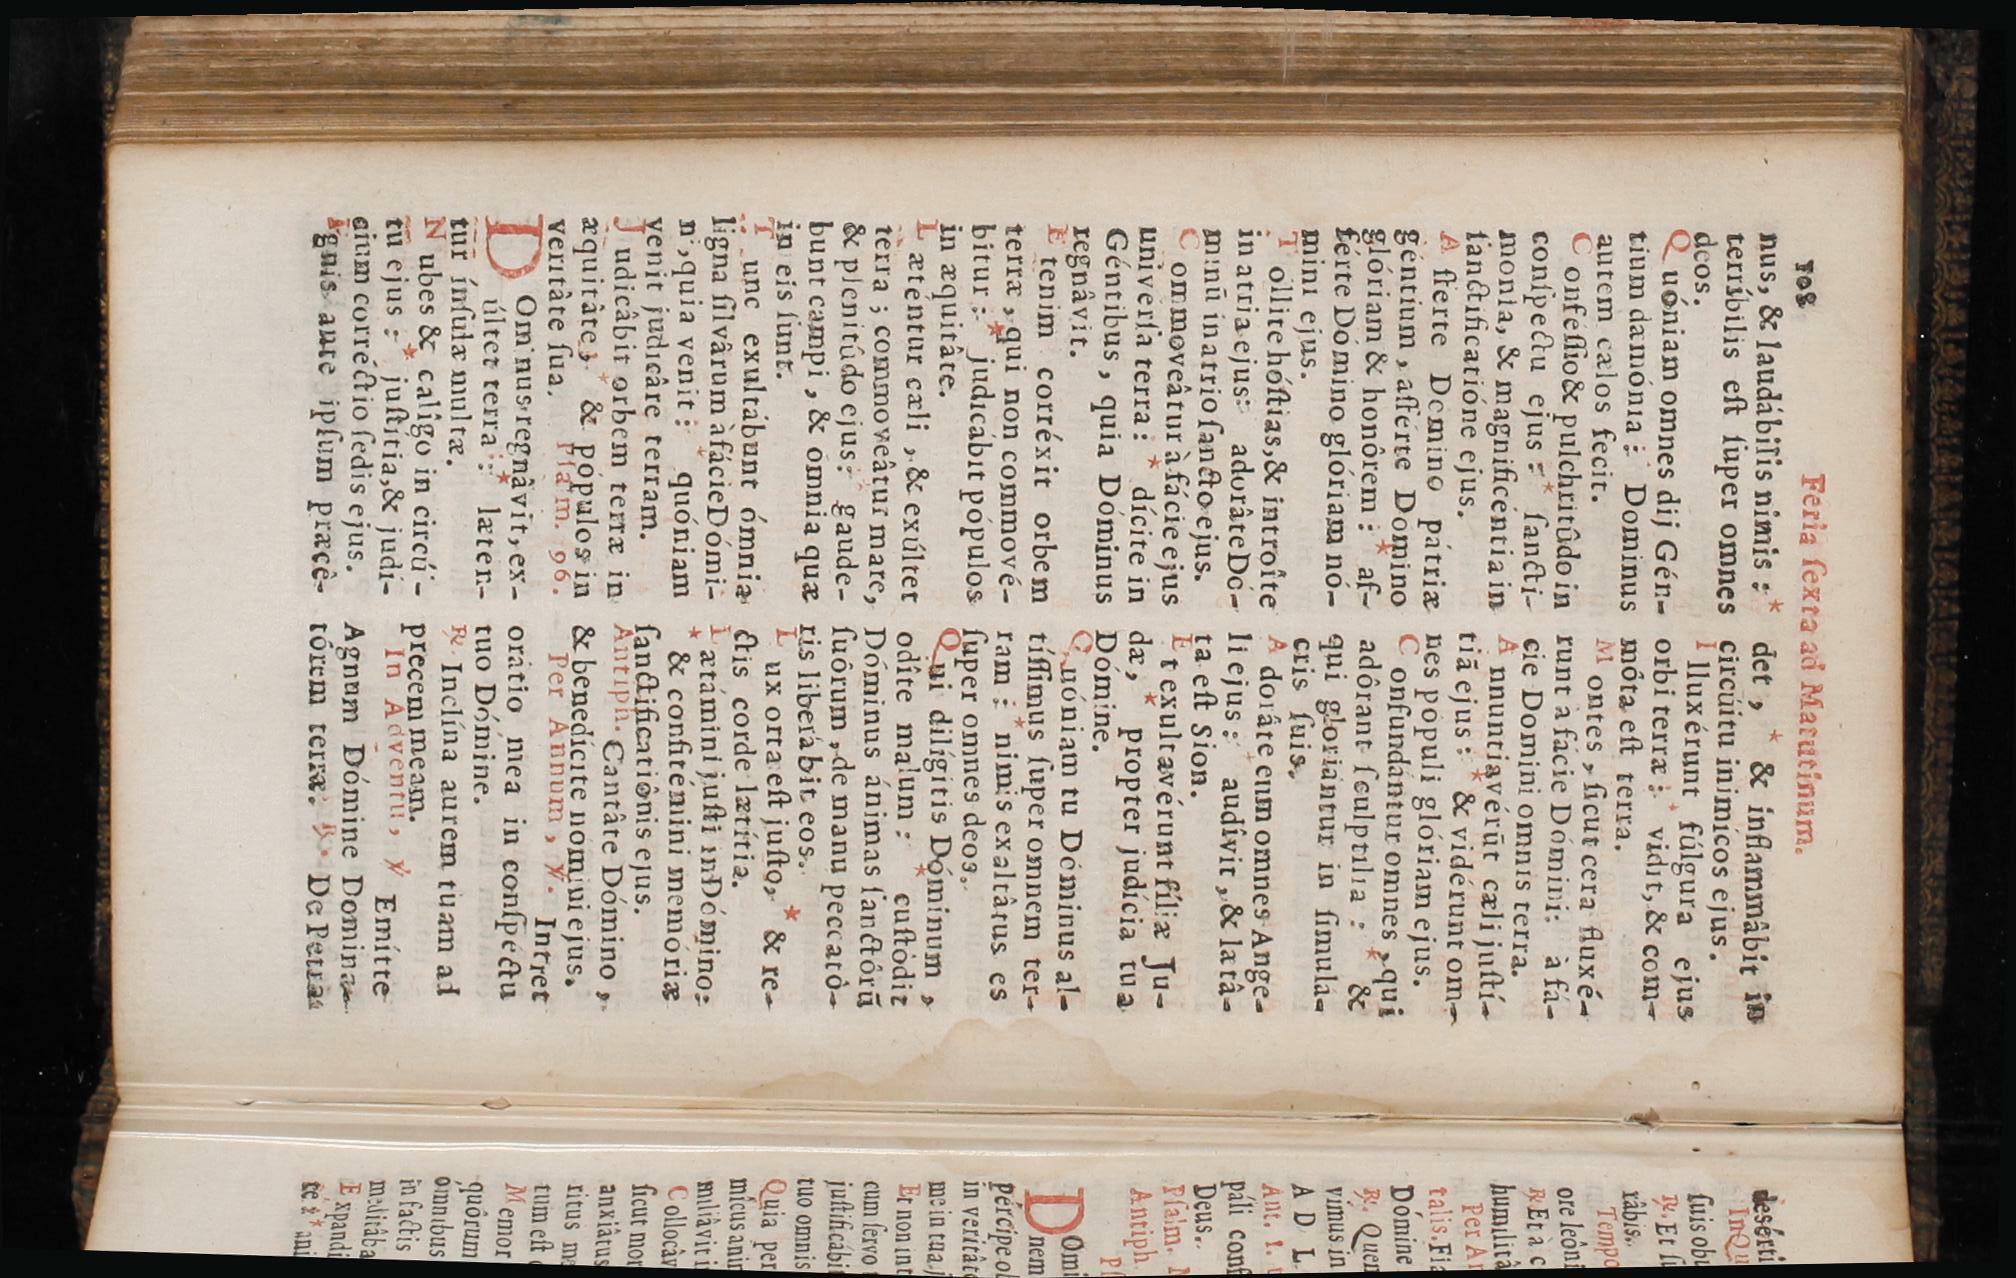 108
Feria ſexta ad Matutinum.
nus, & laudábilis nimis: *
terríbilis eſt ſuper omnes
deos.
Quóniam omnes dij Gén-
tium dæmónia: Dominus
autem cælos fecit.
Conféſſio & pulchritûdo in
conſpectu ejus: * ſancti-
monia, & magnificéntia in
ſanctificatióne ejus.
Afferte Domino pátriæ
géntium, afférte Dómino
glóriam & honôrem: * af-
férte Dómino glóriam nó-
mini ejus.
Tollite hóſtias, & introîte
in atria ejus: adorâte Dó-
minū in atrio ſancto ejus.
Commoveâtur à fácie ejus
univerſa terra: * dícite in
Géntibus, quia Dóminus
regnâvit.
Etenim corréxit orbem
terræ, qui non commové-
bitur: * judicábit pópulos
in æquitâte.
Lætentur cæli, & exúltet
terra; commoveâtur mare,
& plenitúdo ejus: gaude-
bunt campi, & omnia quæ
in eis ſunt.
Tunc exultábunt ómnia
ligna ſilvârum à fácie Dómi-
ni, quia venit: * quóniam
venit judicâre terram.
Judicâbit orbem terræ in
æquitâte, * & pópulos in
veritâte ſua. Pſalm. 96.
DOminus regnâvit, ex-
últet terra: * læten-
tur ínſulæ multæ.
Nubes & calîgo in circúi-
tu ejus: * juſtitia, & judí-
cium corréctio ſedis ejus.
Ignis ante ipſum præcê-
det, * & inflammâbit in
circúitu inimícos ejus.
Illuxérunt fúlgura ejus
orbi terræ: * vidit, & com-
môta eſt terra.
Montes, ſicut cera fluxé-
runt à fácie Dómini: à fá-
cie Domini omnis terra.
Annuntiavérūt cæli juſtí-
tiā ejus: * & vidérunt om-
nes pópuli glóriam ejus.
Confundántur omnes, qui
adôrant ſculptília: * &
qui gloriántur in ſimula-
cris ſuis.
Adorâte eum omnes Ange-
li ejus: * audîvit, & lætâ-
ta eſt Sion.
Et exultavérunt fíliæ Ju-
dæ, * propter judícia tua
Dómine.
Quóniam tu Dóminus al-
tíſſimus ſuper omnem ter-
ram: * nimis exaltâtus es
ſuper omnes deos.
Qui dilígitis Dóminum,
odîte malum: * cuſtódit
Dóminus ánimas ſanctôrū
ſuôrum, de manu peccatô-
ris liberábit eos.
Lux orta eſt juſto, * & re-
ctis corde lætítia.
Lætámini juſti in Dómino:
* & confitémini memóriæ
ſanctificatiônis ejus.
Antiph. Cantâte Dómino,
& benedícite nómini ejus.
Per Annum, ℣. Intret
orátio mea in conſpéctu
tuo Dómine.
℟. Inclína aurem tuam ad
precem meam.
In Advéntu, ℣ Emítte
Agnum Dómine Domina-
tórem terræ. ℟. De Petra
deſérti
In Qu
ſuis obu
℟. Et
râbis.
Tempo
ore leôni
℟ Et à c
humilitâ
Per An
talis. Fia
Dómine
℟. Quem
vimus in
A D L
Ant. 1.
páli conſ
Deus.
Pſalm.
Antiph.
DOmi
nem
pércipe ob
in veritâte
Et non int
me in tua j
cum ſervo
juſtificábi
tuo omnis
Quia per
micus anim
miliâvit i
Collocâv
ſicut mor
anxiâtus
ritus me
tum eſt
Memor
quôrum
ómnibus
in factis
meditába
Expandi
te: * ani